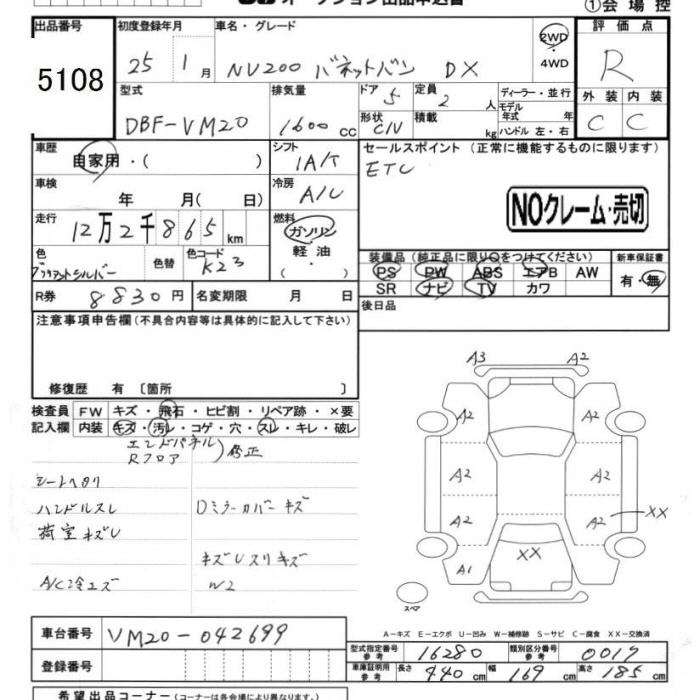 オークション出品申込書
①会場控
出品番号 初度登録年月 車名・グレード 評価点
5108 25 1月 NV200 バネットバン DX 2WD・4WD R
型式 排気量 ドア 5 定員 2人 ディーラー・並行 外装 内装
DBF-VM20 1600cc 形状 C/V 積載 kg モデル年式 年式 ハンドル 左・右 C C
車歴 自家用・( ) シフト IA/T セールスポイント(正常に機能するものに限ります)
ETC
車検 年 月(日) 冷房 A/C
NOクレーム・売切
走行 12万2千865km 燃料 ガソリン・軽油・( )
色 ブリリアントシルバー 色替 色コード K23
装備品(純正品に限り○をつけてください) 新車保証書
PS PW ABS エアB AW 有・無
SR ナビ TV カワ
R券 8830円 名変期限 月 日
後日品
注意事項申告欄(不具合内容等は具体的に記入して下さい)
修復歴 有〔箇所 〕
検査員記入欄 FW キズ・飛石・ヒビ割・リペア跡・×要
内装 キズ・汚レ・コゲ・穴・スレ・キレ・破レ
エンドパネル
Rフロア )修正
シートヘタリ
ハンドルスレ Dミラーカバーキズ
荷室キズU
キズUスリキズ
A/C冷エズ W2
A3 A2
A2 A2
A2 A2
A2 A2 XX
XX
A1
スペア
A-キズ E-エクボ U-凹み W-補修跡 S-サビ C-腐食 XX-交換済
車台番号 VM20-042699
型式指定番号 参考 16280 類別区分番号 参考 0017
登録番号
車庫証明用 参考 長さ 440cm 幅 169cm 高さ 185cm
希望出品コーナー(コーナーは各会場により異なります。)